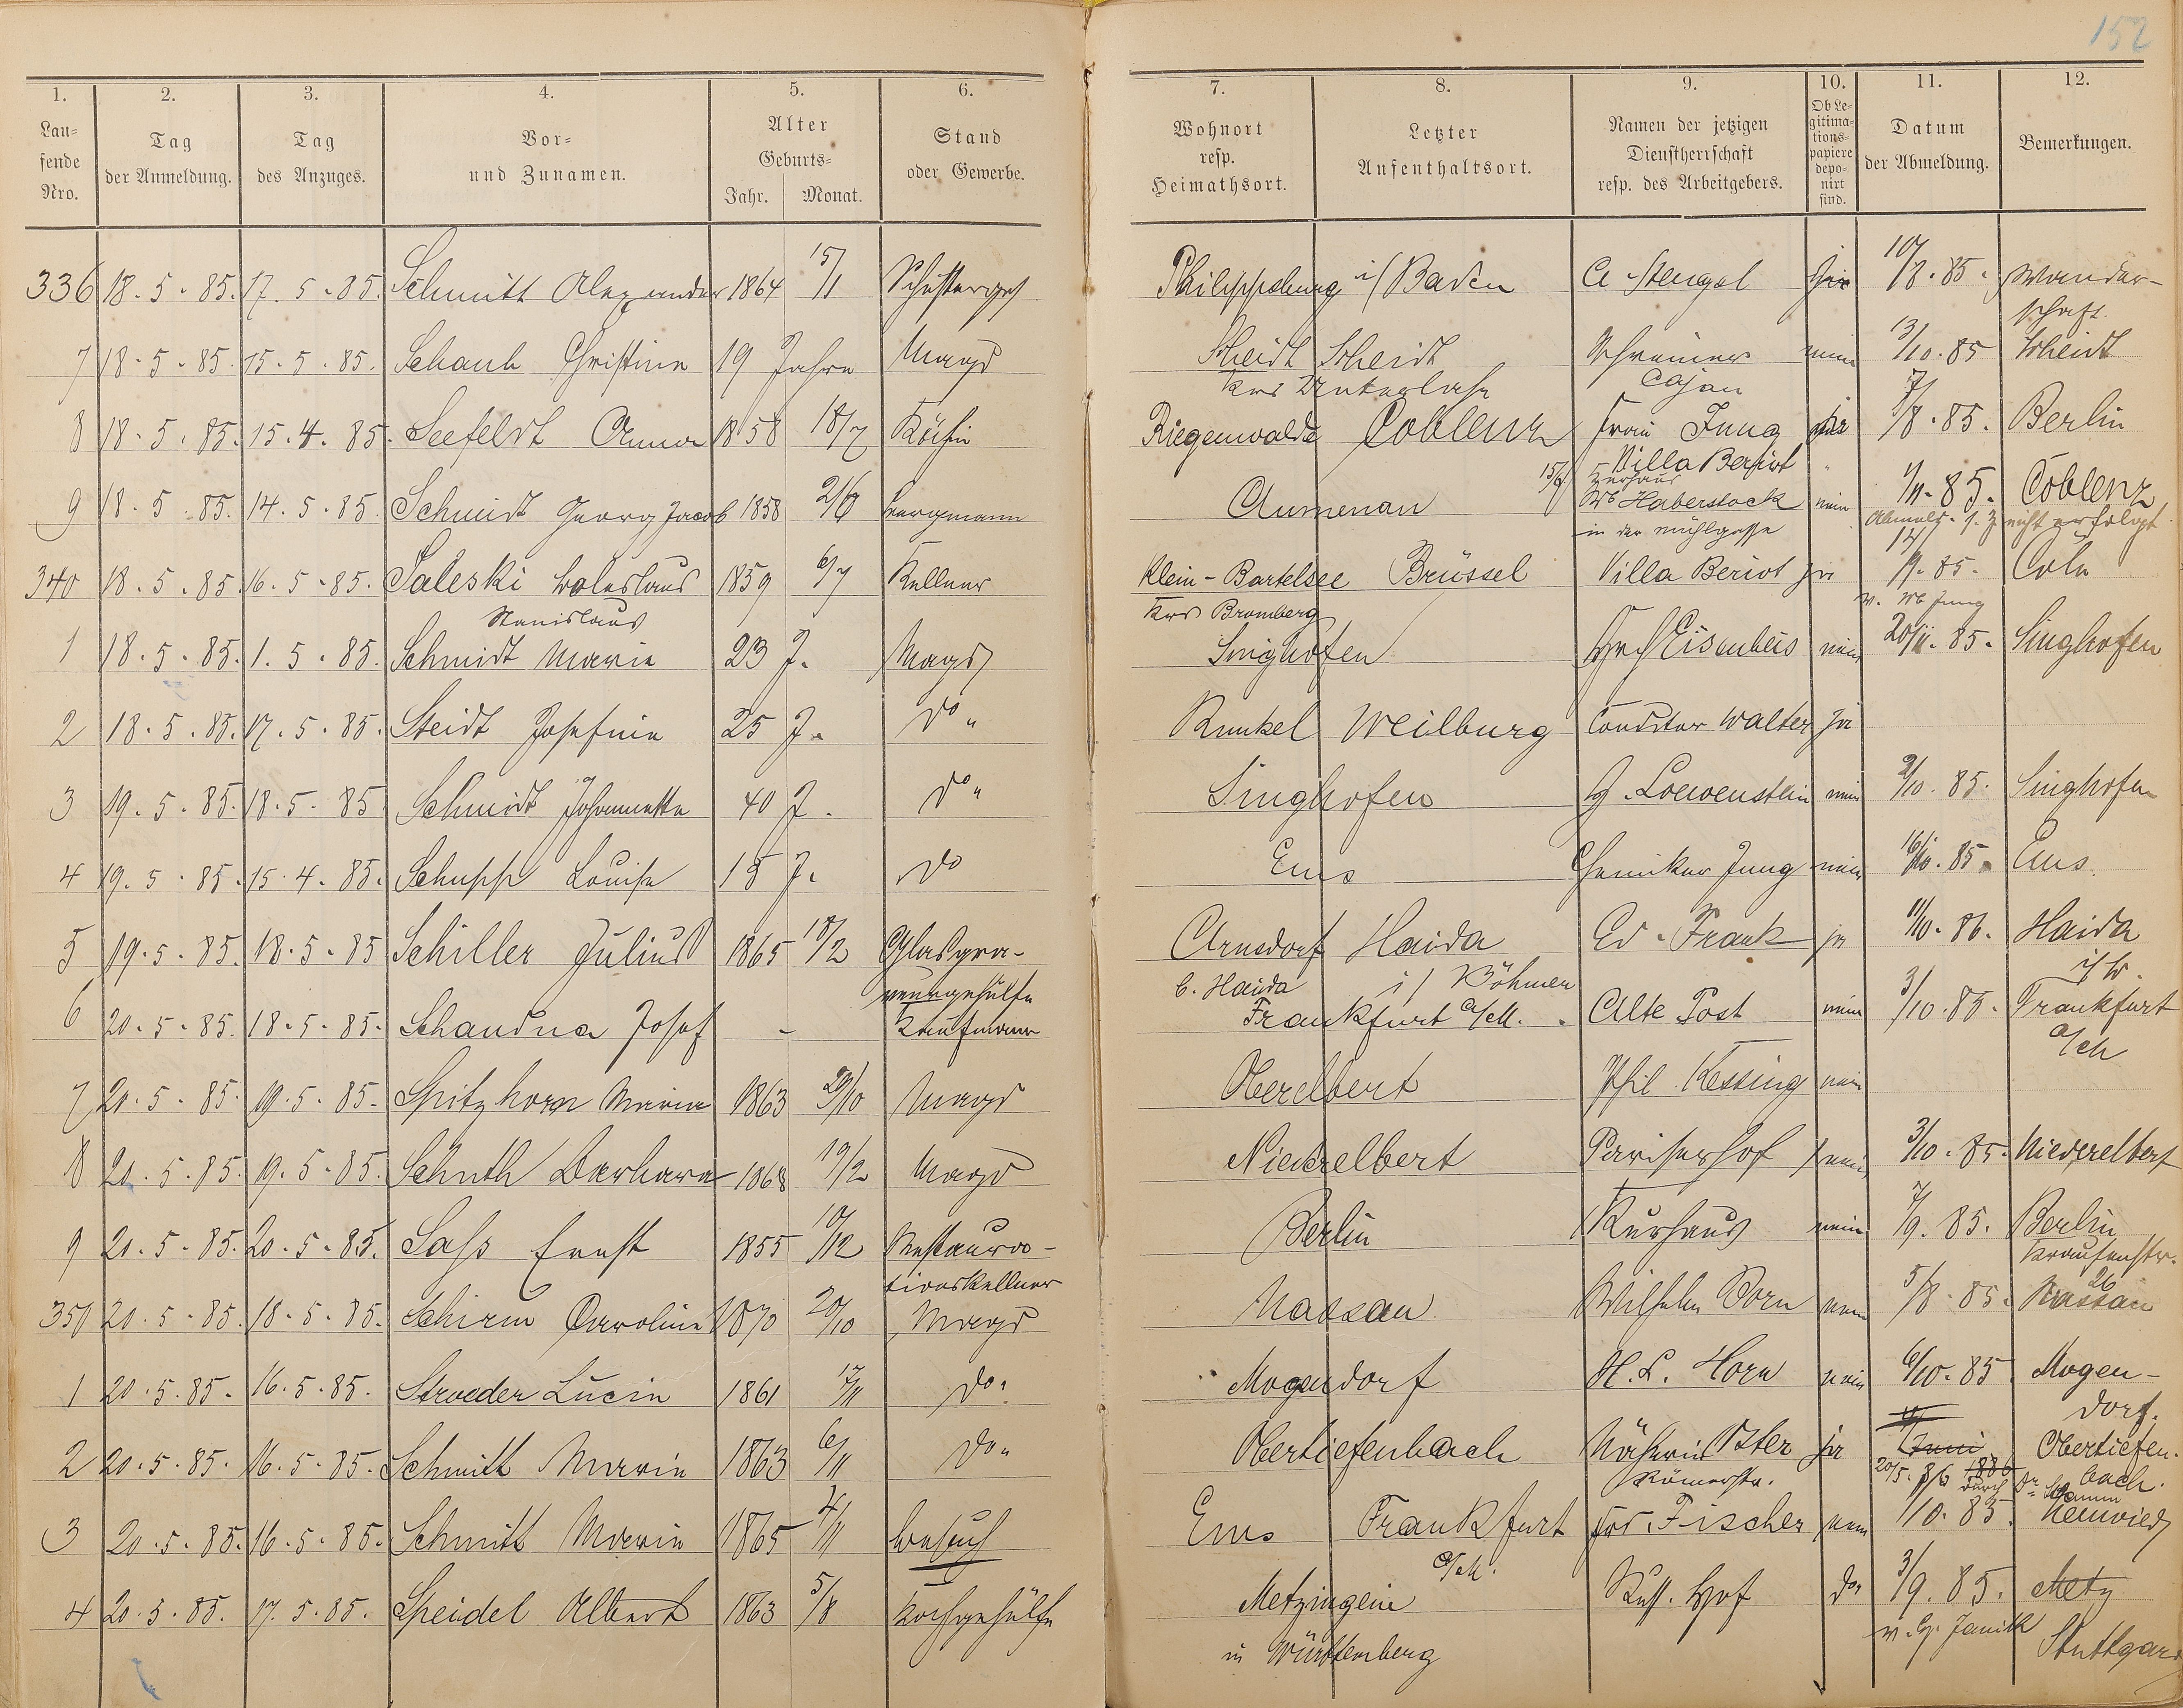 152
1. 2. 3. 4. 5. 6. 7. 8. 9. 10. 11. 12.
Lau=
fende
Nro.
Tag
der Anmeldung.
Tag
des Anzuges.
Vor=
und Zunamen.
Alter
Geburts=
Jahr. Monat.
Stand
oder Gewerbe.
Wohnort
resp.
Heimathsort.
Letzter
Aufenthaltsort.
Namen der jetzigen
Dienstherrschaft
resp. des Arbeitgebers.
Ob Le=
gitima=
tions=
papiere
depo=
nirt
sind.
Datum
der Abmeldung.
Bemerkungen.
336 18. 5. 85. 17. 5. 85. Schmitt Alexander 1864 15/1 Schusterges Philippsburg i/ Baden A. Stengel ja 10/8. 85. Wander-
schaft.
7 18. 5. 85. 15. 5. 85. Schaub Christine 19 Jahre Magd Scheidt Scheidt Schreiner nein 13/10. 85 Scheidt
Krs Unterlahn Cajan
8 18. 5. 85. 15. 4. 85. Seefeldt Anna 1858 18/7 Köchin Riegenwalde Coblenz Frau Jung ja 7/8. 85. Berlin
Villa Beriot
9 18. 5. 85. 14. 5. 85. Schmidt Georg Jacob 1858 2/6 Bergmann Aumenau Wb Haberstock nein 1/11. 85. Coblenz
in der Mühlgasse Abmeld. s. Z nicht erfolgt
340 18. 5. 85 16. 5. 85. Saleski Boleslaus 1859 6/7 Kellner Klein-Bartelsee Brüssel Villa Beriot ja 12/9. 85. Cöln
Stanislaus Krs Bromberg v. Wb Jung
1 18. 5. 85. 1. 5. 85. Schmidt Marie 23 J. Magd Singhofen Eisenbeis nein 20/11. 85. Singhofen
2 18. 5. 85. 17. 5. 85. Steidt Josefine 25 J. do " Runkel Weilburg Conditor Walter ja
3 19. 5. 85. 18. 5. 85 Schmidt Johannette 40 J. do " Singhofen G. Loewenstein nein 2/10. 85. Singhofen
4 19. 5. 85. 15. 4. 85. Schupp Louise 18 J. do Ems Chemiker Jung nein 16/10. 85. Ems.
5 19. 5. 85. 18. 5. 85 Schiller Julius 1865 18/2 Glasgra- Arnsdorf Haida Ed. Frank ja 11/10. 86. Haida
veurgehülfe b. Haida i/ Böhmen i/ B.
6 20. 5. 85. 18. 5. 85. Schandua Josef - Kaufmann Frankfurt a/M. Alte Post nein 3/10. 85. Frankfurt
a/M
7 20. 5. 85. 19. 5. 85. Spitzhorn Maria 1863 29/10 Magd Oberelbert Phil. Kessing nein
8 20. 5. 85. 19. 5. 85. Schuth Barbara 1868 19/2 Magd Niederelbert Pariserhof nein 3/10. 85. Niederelbert
9 20. 5. 85. 20. 5. 85. Saß Ernst 1855 10/12 Restaura- Berlin Kurhaus nein 7/9. 85. Berlin
tionskellner Krausenstr.
26
350 20. 5. 85. 18. 5. 85. Schirm Caroline 1870 20/10 Magd Nassau Wilhelm Born nein 5/8. 85. Nassau
1 20. 5. 85. 16. 5. 85. Stroeder Lucia 1861 17/11 do. Mogendorf H. L. Horn nein 6/10. 85 Mogen-
dorf.
2 20. 5. 85. 16. 5. 85. Schmitt Maria 1863 6/11 do " Obertiefenbach Näherin Ster ja Juni 1886 Obertiefen-
Römerstr. 20/5. 86 durch bach.
3 20. 5. 85. 16. 5. 85. Schmitt Maria 1865 4/11 Besuch Ems Frankfurt Frd. Fischer nein 1/10. 85. Neuwied
a/M.
4 20. 5. 85. 17. 5. 85. Speidel Albert 1863 5/8 Kochgehülfe Metzingein Russ. Hof do. 3/9. 85. Metz
in Württemberg v. G. Janitk Stuttgard